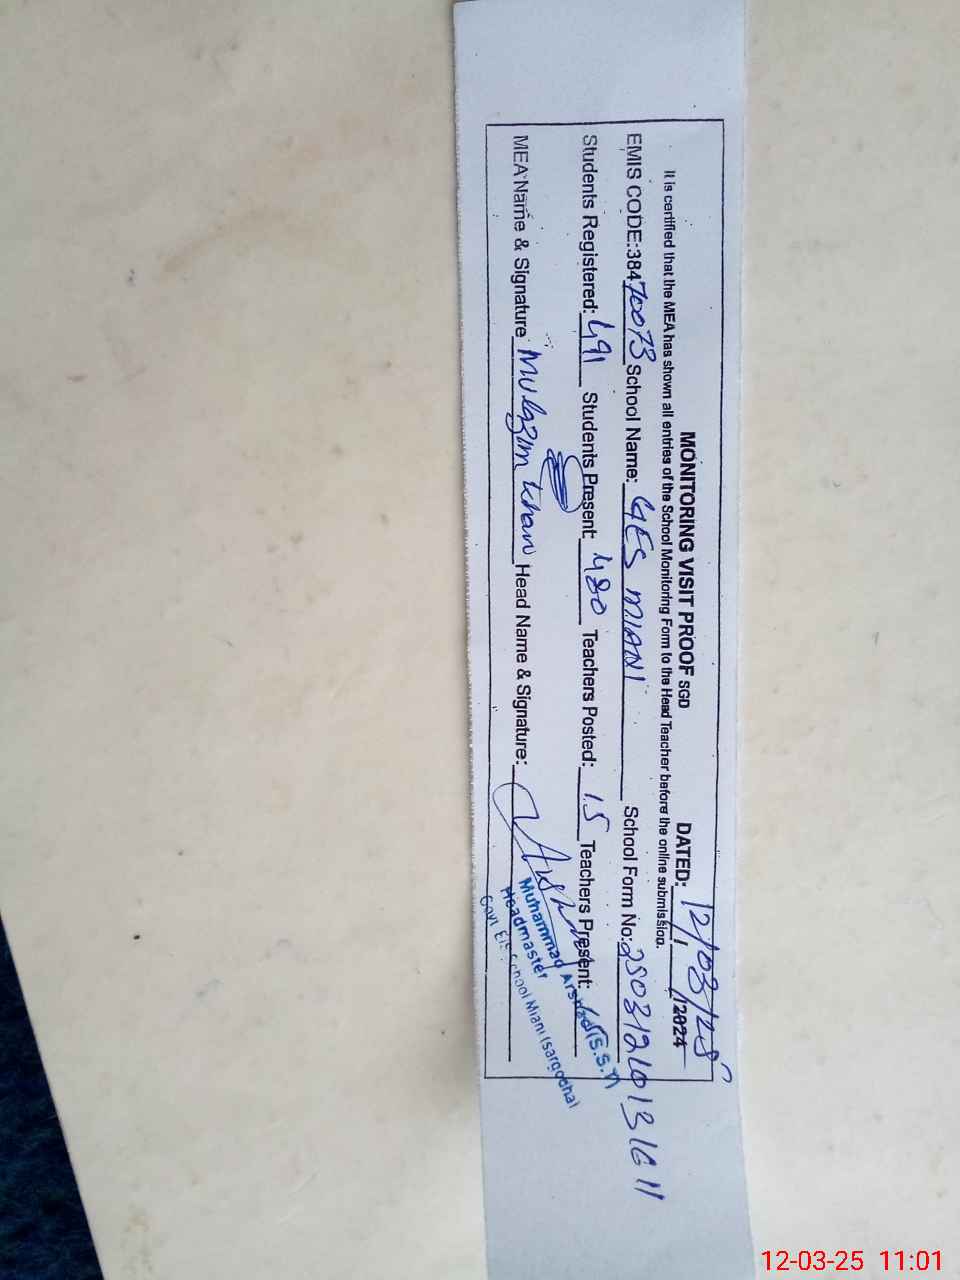 MONITORING VISIT PROOF SGD DATED: 12/03/25 / /2024
It is certified that the MEA has shown all entries of the School Monitoring Form to the Head Teacher before the online submission.
EMIS CODE:38470073 School Name: GES MIANI School Form No:
Students Registered: 491 Students Present: 480 Teachers Posted: 15 Teachers Present: 15
MEA Name & Signature Mulazim Khan Head Name & Signature:
Muhammad Arshad (S.S.T)
Headmaster
School Miani (sargodha)
12-03-25 11:01